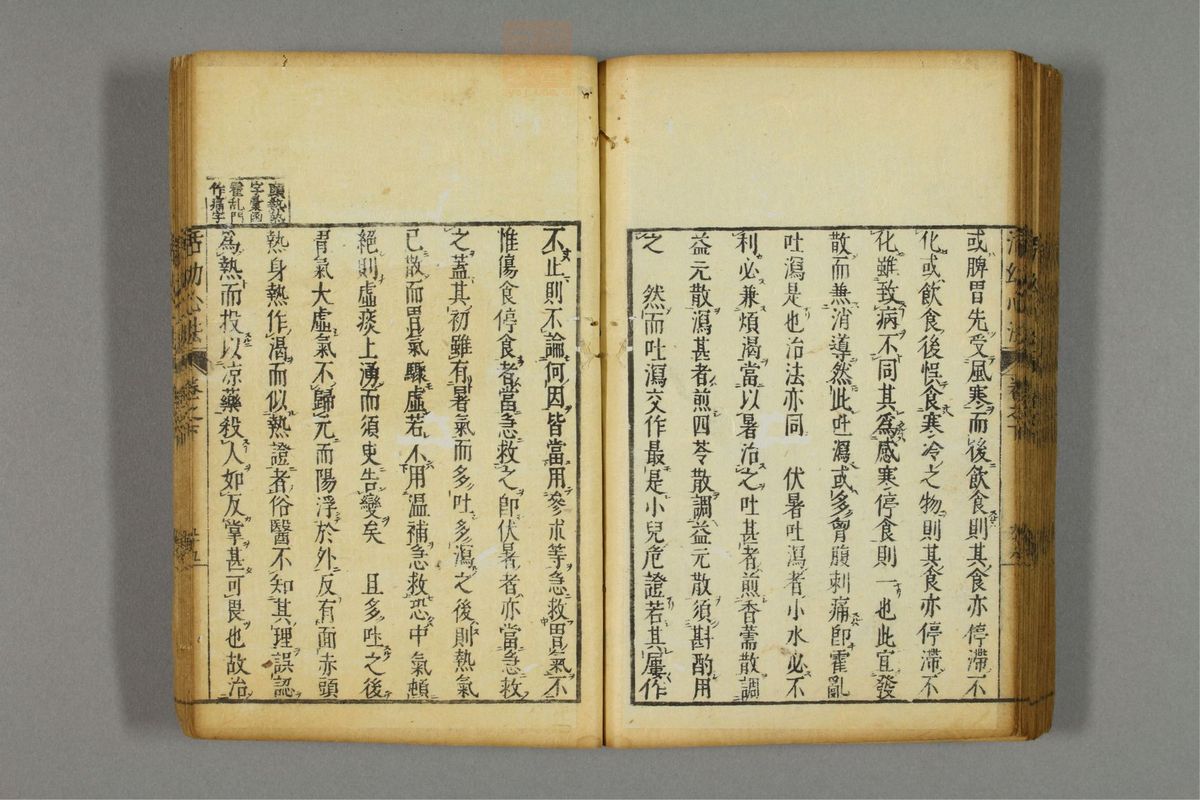 或脾胃先受風寒而後飲食則其食亦停滯不
化或飲食後恣食寒冷之物則其食亦停滯不
化雖致病不同其為感寒停食則一也此宜發
散而兼消導然此吐瀉或多曾腹刺痛即霍亂
吐瀉是也治法亦同 伏暑吐瀉者小水必不
利必兼煩渴當以暑治之吐甚者煎香薷散調
益元散瀉甚者煎四苓散調益元散須斟酌用
之 然而吐瀉交作最是小兒危證若其屢作
不止則不論何因皆當用參朮等急救胃氣不
惟傷食停食者當急救之即伏暑者亦當急救
之蓋其初雖有暑氣而多吐多瀉之後則熱氣
已散而胃氣驟虛若不用温補急救恐中氣頓
絕則虛痰上湧而須臾告變矣 且多吐之後
胃氣大虛氣不歸元而陽浮於外反有面赤頭
熱身熱作渴而似熱證者俗醫不知其理誤認
為熱而投以凉藥殺人如反掌甚可畏也故治
頭熱熱
字彙函
霍乱門
作痛字
活幼心法
卷之